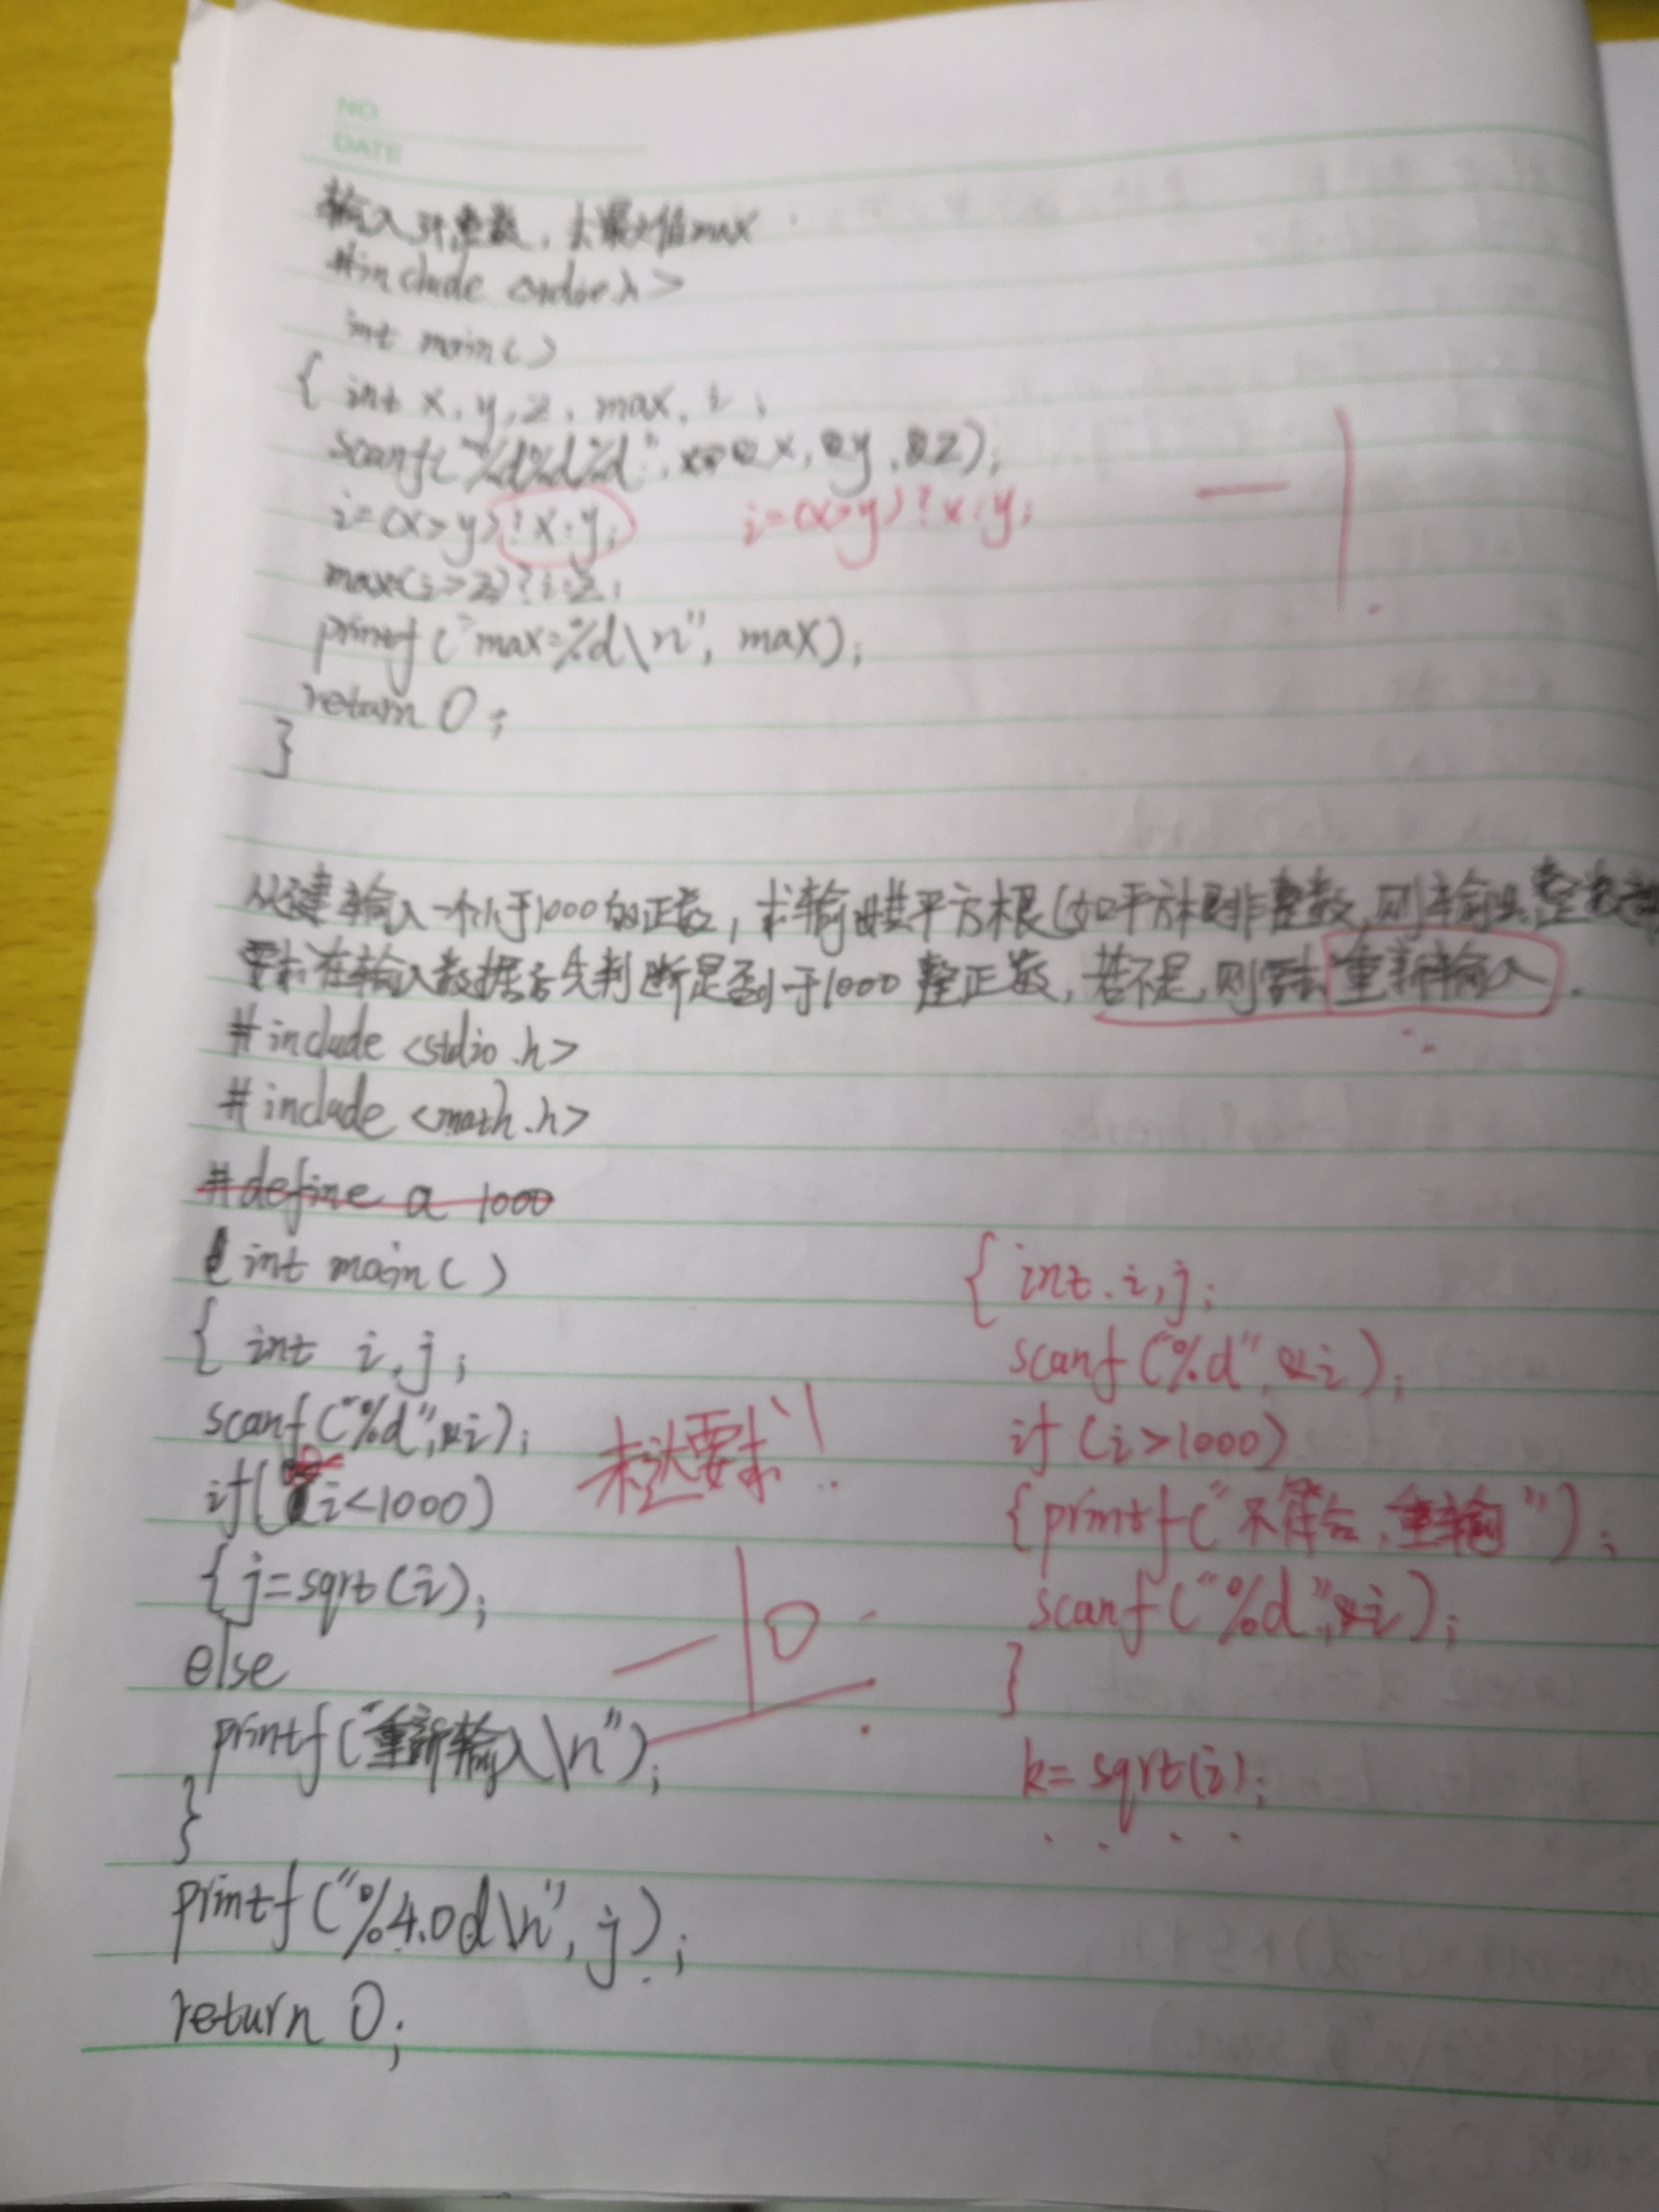 NO.
DATE
输入3个整数，求最大值max
#include <stdio.h>
int main()
{ int x, y, z, max, i;
scanf("%d%d%d", &x, &y, &z);
i=(x>y)?x:y; i=(x>y)?x:y; -1
max(i>z)?i:z;
printf("max=%d\n", max);
return 0;
}
从键输入一个小于1000的正数，求输出其平方根(如平方根非整数，则输出整数部
要求在输入数据后先判断是否小于1000整正数，若不是，则要求重新输入.
#include <stdio.h>
#include <math.h>
#define a 1000
int main()
{ int i, j;
scanf("%d",&i);
if(i<1000)
未达要求!
{j=sqrt(i);
-10
else
printf("重新输入\n");
}
printf("%4.0d\n", j);
return 0;
{ int i, j;
scanf("%d",&i);
if (i>1000)
{printf("不符合,重输");
scanf("%d",&i);
}
k=sqrt(i);